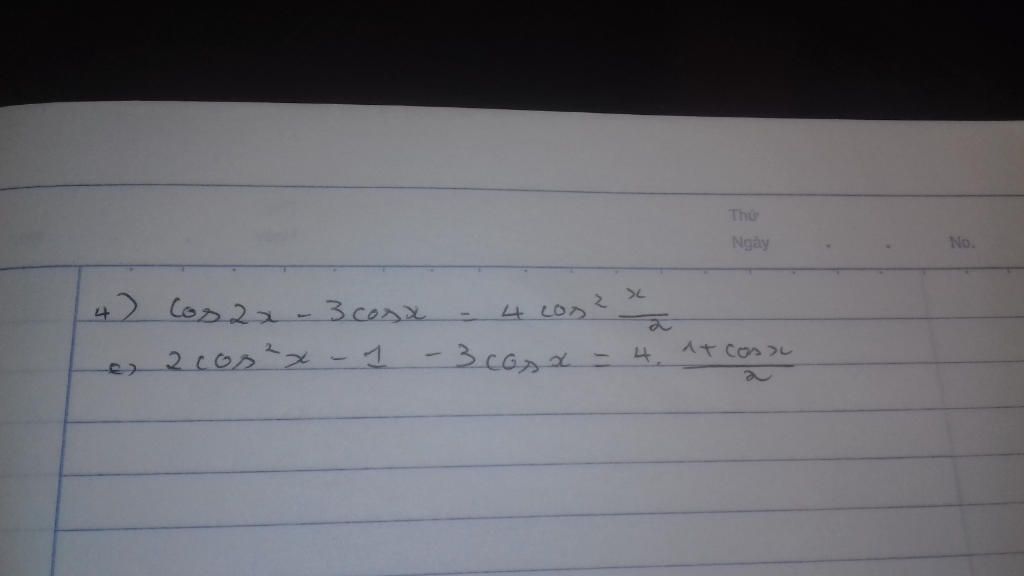 Thứ
Ngày . . No.
4) cos2x - 3cosx = 4cos² x/2
<=> 2cos²x - 1 - 3cosx = 4. 1+cosx/2